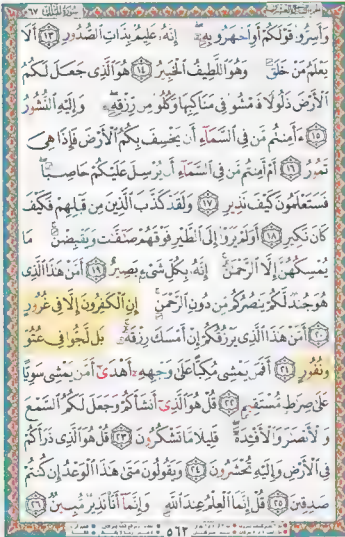 سورة الملك ٦٧
وَأَسِرُّوا۟ قَوْلَكُمْ أَوِ ٱجْهَرُوا۟ بِهِۦٓ ۖ إِنَّهُۥ عَلِيمٌۢ بِذَاتِ ٱلصُّدُورِ ١٣ أَلَا
يَعْلَمُ مَنْ خَلَقَ وَهُوَ ٱللَّطِيفُ ٱلْخَبِيرُ ١٤ هُوَ ٱلَّذِى جَعَلَ لَكُمُ
ٱلْأَرْضَ ذَلُولًا فَٱمْشُوا۟ فِى مَنَاكِبِهَا وَكُلُوا۟ مِن رِّزْقِهِۦ ۖ وَإِلَيْهِ ٱلنُّشُورُ
١٥ ءَأَمِنتُم مَّن فِى ٱلسَّمَآءِ أَن يَخْسِفَ بِكُمُ ٱلْأَرْضَ فَإِذَا هِىَ
تَمُورُ ١٦ أَمْ أَمِنتُم مَّن فِى ٱلسَّمَآءِ أَن يُرْسِلَ عَلَيْكُمْ حَاصِبًا ۖ
فَسَتَعْلَمُونَ كَيْفَ نَذِيرِ ١٧ وَلَقَدْ كَذَّبَ ٱلَّذِينَ مِن قَبْلِهِمْ فَكَيْفَ
كَانَ نَكِيرِ ١٨ أَوَلَمْ يَرَوْا۟ إِلَى ٱلطَّيْرِ فَوْقَهُمْ صَٰٓفَّٰتٍ وَيَقْبِضْنَ ۚ مَا
يُمْسِكُهُنَّ إِلَّا ٱلرَّحْمَٰنُ ۚ إِنَّهُۥ بِكُلِّ شَىْءٍۭ بَصِيرٌ ١٩ أَمَّنْ هَٰذَا ٱلَّذِى
هُوَ جُندٌ لَّكُمْ يَنصُرُكُم مِّن دُونِ ٱلرَّحْمَٰنِ ۚ إِنِ ٱلْكَٰفِرُونَ إِلَّا فِى غُرُورٍ
٢٠ أَمَّنْ هَٰذَا ٱلَّذِى يَرْزُقُكُمْ إِنْ أَمْسَكَ رِزْقَهُۥ ۚ بَل لَّجُّوا۟ فِى عُتُوٍّ
وَنُفُورٍ ٢١ أَفَمَن يَمْشِى مُكِبًّا عَلَىٰ وَجْهِهِۦٓ أَهْدَىٰٓ أَمَّن يَمْشِى سَوِيًّا
عَلَىٰ صِرَٰطٍ مُّسْتَقِيمٍ ٢٢ قُلْ هُوَ ٱلَّذِىٓ أَنشَأَكُمْ وَجَعَلَ لَكُمُ ٱلسَّمْعَ
وَٱلْأَبْصَٰرَ وَٱلْأَفْـِٔدَةَ ۖ قَلِيلًا مَّا تَشْكُرُونَ ٢٣ قُلْ هُوَ ٱلَّذِى ذَرَأَكُمْ
فِى ٱلْأَرْضِ وَإِلَيْهِ تُحْشَرُونَ ٢٤ وَيَقُولُونَ مَتَىٰ هَٰذَا ٱلْوَعْدُ إِن كُنتُمْ
صَٰدِقِينَ ٢٥ قُلْ إِنَّمَا ٱلْعِلْمُ عِندَ ٱللَّهِ وَإِنَّمَآ أَنَا۠ نَذِيرٌ مُّبِينٌ ٢٦
٥٦٣